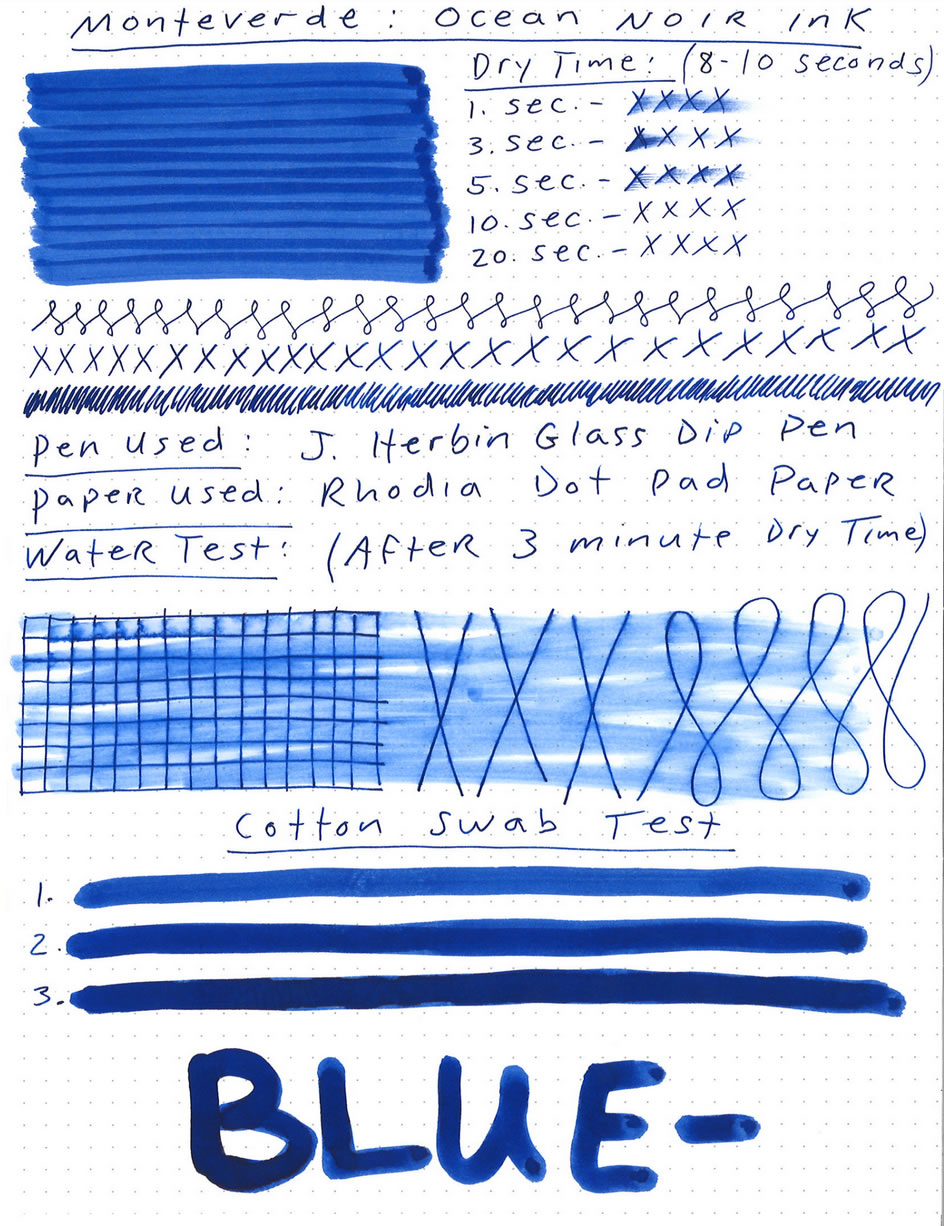 Monteverde: Ocean Noir Ink
Dry Time: (8-10 seconds)
1. sec. - XXXX
3. sec. - XXXX
5. sec. - XXXX
10. sec. - XXXX
20. sec. - XXXX
XXXXXXXXXXXXXXXXXXXXXXXXXX
Pen Used: J. Herbin Glass Dip Pen
Paper Used: Rhodia Dot Pad Paper
Water Test: (After 3 minute Dry Time)
XXX
Cotton Swab Test
1.
2.
3.
BLUE-